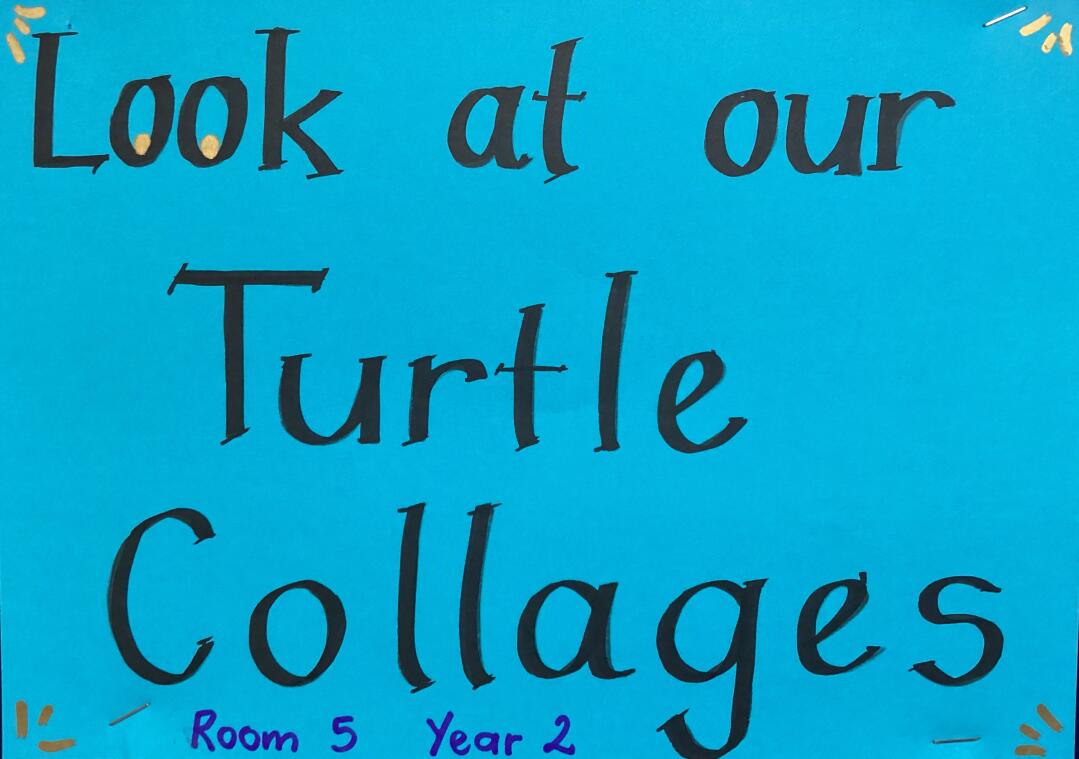 Look at our
Turtle
Collages
Room 5 Year 2